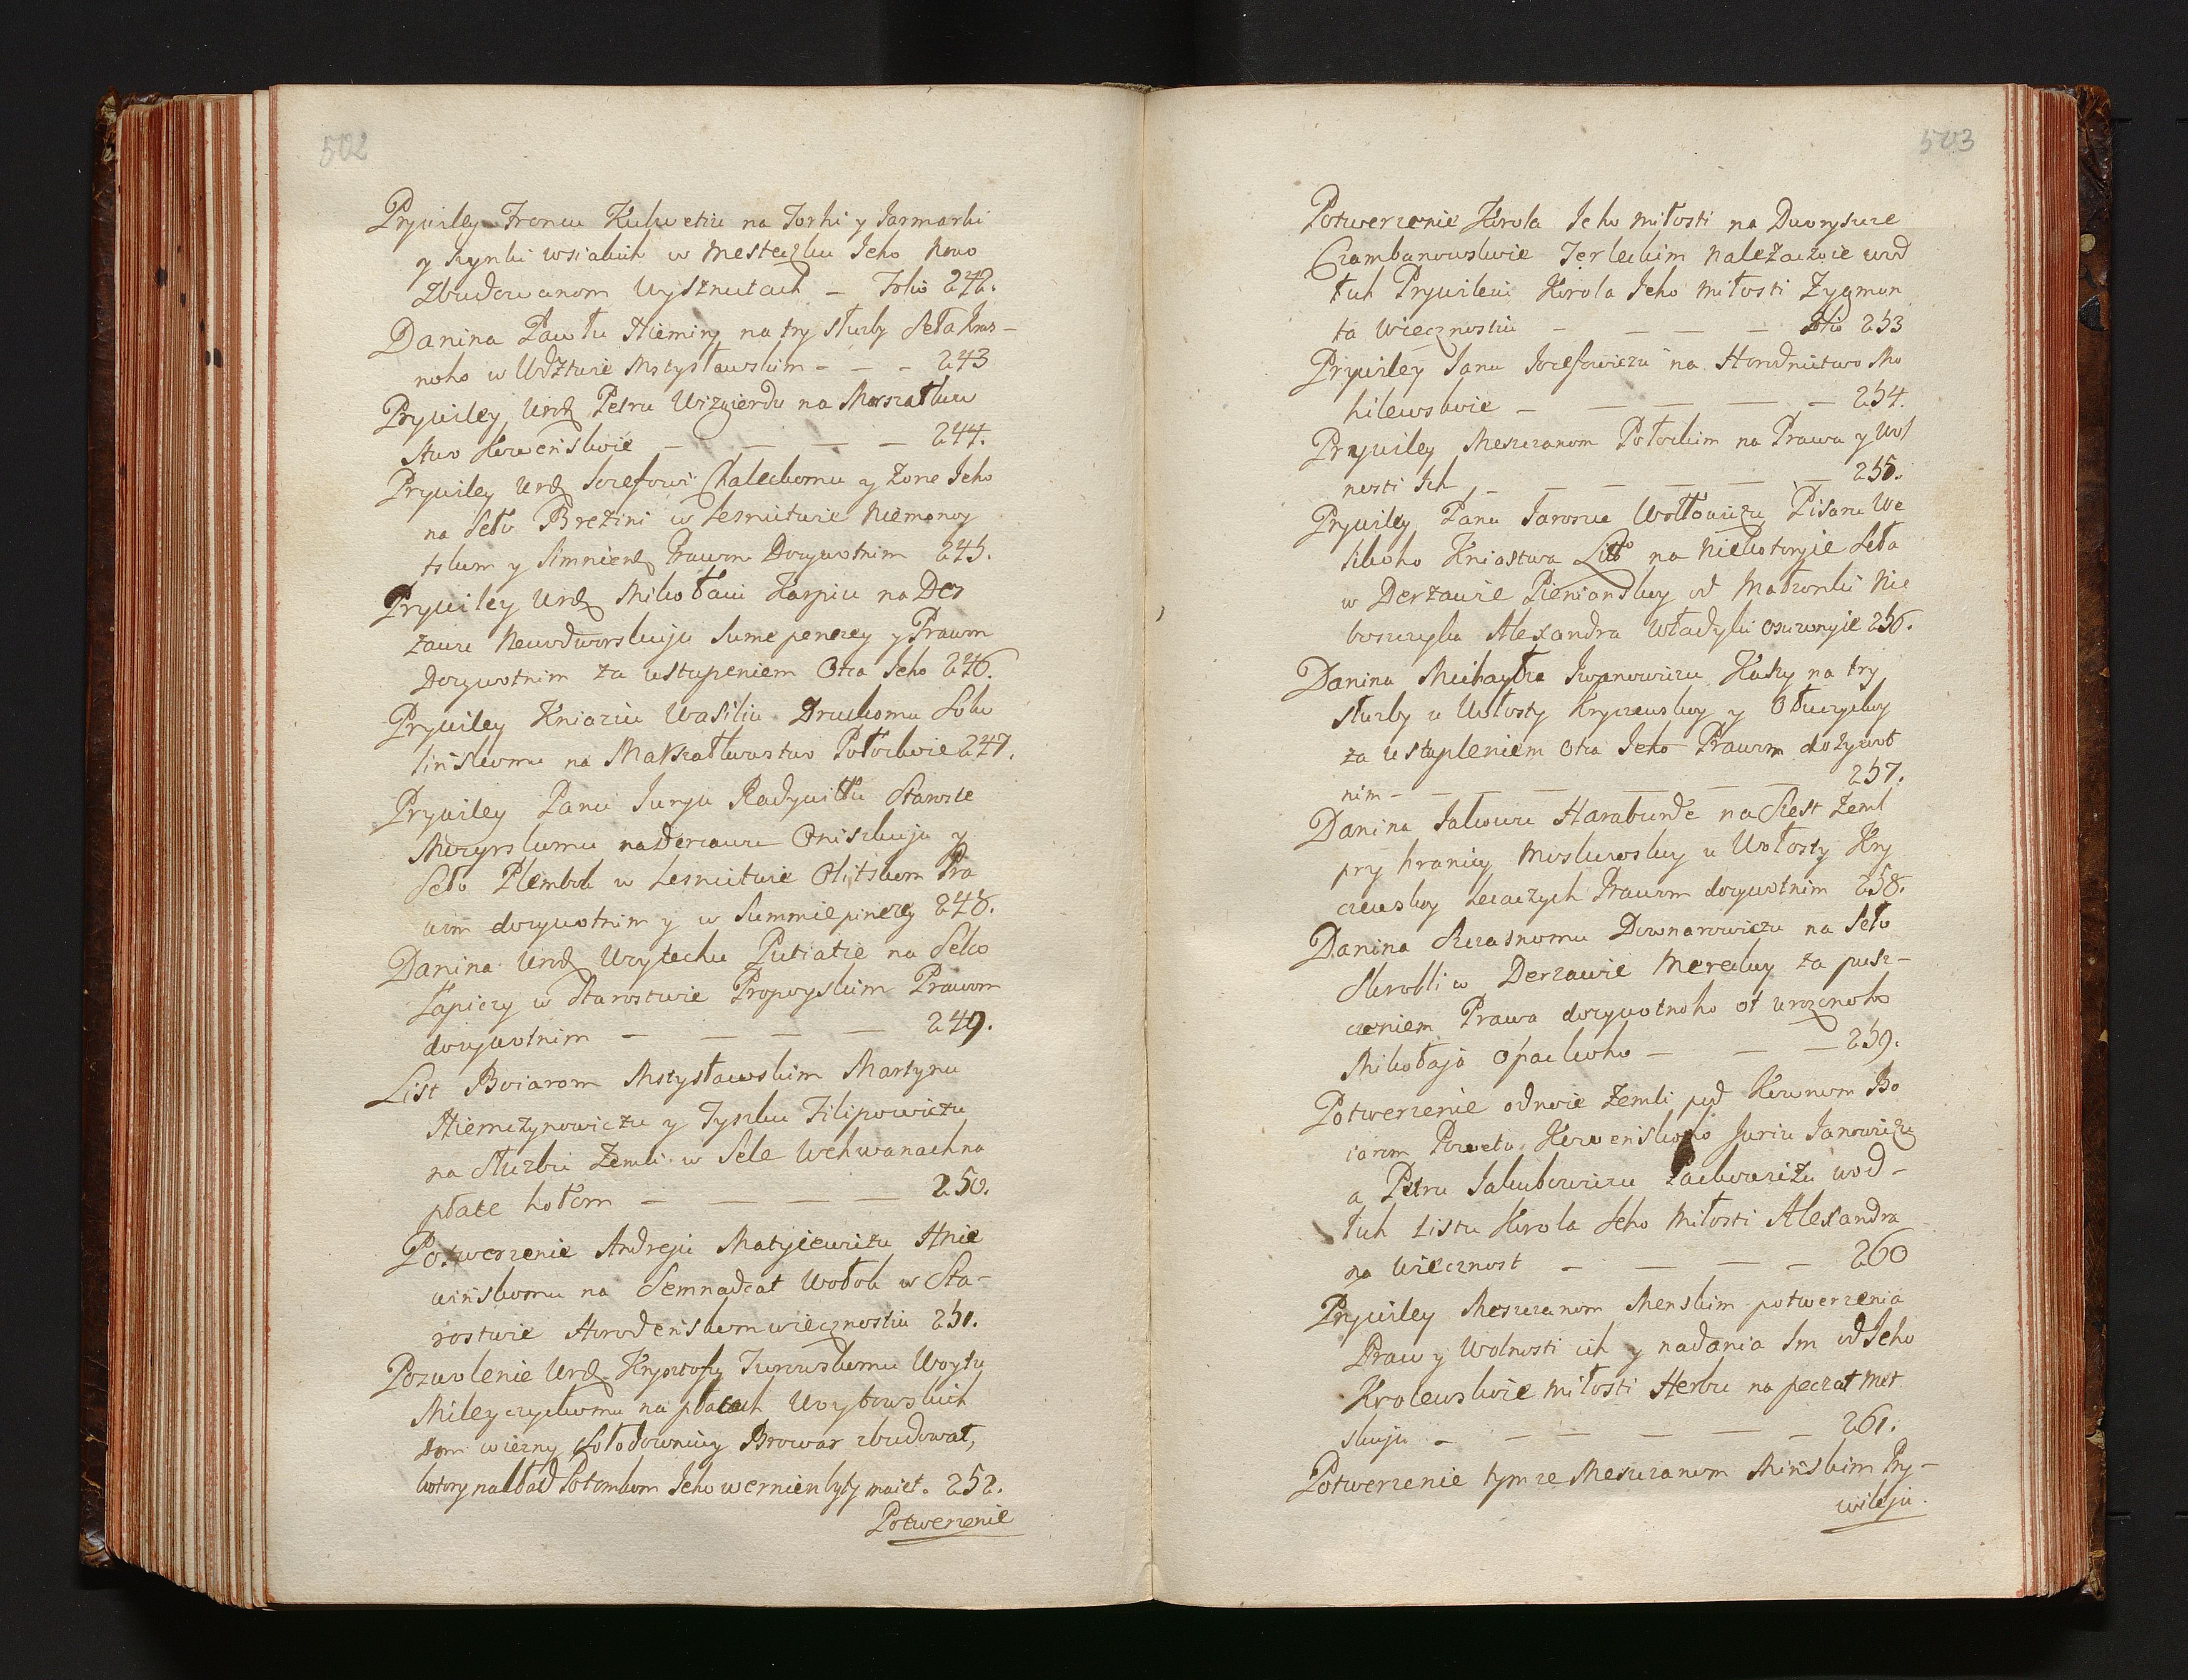 502
Prywiley Froncu Kulwetiu na Torhi y Jarmarki
y Szynki wsiakich w Mesteczku Jeho Nowo
Zbudowanom Wysznutach – Folio 242.
Danina Pawłu Hieminy na try słuzby Seła Kras-
noho w Wdztwie Mstysławskim – – – 243
Prywiley Urodz Petru Wizgierdu na Marszałkow
stwo Kowenskoie – – – – 244.
Prywiley Urodz Jozefowi Chaleckomu y Zone Jeho
na Seło Brezini w Lesnictwie Niemonoy
tskom y Simnienz Prawom Dozywotnim 245.
Prywiley Urodz Mikołaiu Karpiu na Der
zawu Nowodworskuju Sume penezey y Prawom
Dozywotnim za ustupeniem Otca Jeho 246.
Prywiley Kniaziu Wasiliu Druckomu Soko
linskomu na Marszałkowstwo Połockoie 247.
Prywiley Panu Jurju Radywiłłu Staroste
Mozyrskomu na Derzawu Oniszkuju y
Seło Plembok w Lesnictwie Olitskom Pra
wom dozywotnim y w Summie pinezey 248.
Danina Urodz Woytechu Putiatie na Seło
Łapiczy w Starostwie Propoyskim Prawom
dozywotnim – – – – 249.
List Boiarom Mstysławskim Martynu
Niemczynowiczu y Tyszku Filipowiczu
na Słuzbu Zemli w Sele Wchwanach na
płate hołom – – – – 250.
Potwerzenie Andreju Matyiewiczu Hnie
winskomu na Semnadcat Wołok w Sta-
rostwie Horodenskom wiecznostiu 251.
Pozwolenie Urodz Krysztofu Turowskomu Woytu
Mileyczyckomu na płacach Woytowskich
Dom wiezny Sołodowniу Browar zbudował,
kotory nakład Potomkom Jeho wernien byty maiet. 252.
Potwerzenie
503
Potwerzenie Korola Jeho miłosti na Dworyszcze
Czambanowskoie Terleckim należaczoie wod
łuh Prywileiu Korola Jeho Miłosti Zygmun
ta Wiecznostiu – – – – Folio 253
Prywiley Janu Jozefowiczu na Horodnictwo Mo
hilewskoie – – – – – – 254.
Prywiley Meszczanom Połockim na Prawa y Wol
nosti Ich – – – – – – 255.
Prywiley Panu Jaroszu Wołłowiczu Pisaru We
likoho Kniastwa Litto na Niekotoryie Seła
w Derzawie Pienianskoy od Małzonki Nie
boszczyka Alexandra Władyki Oszczonyie 256.
Danina Michayła Iwanowiczu Haky na try
słuzby u Wołosty Kryczewskoy y Ołuczyckoy
za ustupleniem Otca Jeho Prawom dożywot
nim – – – – – – – 257.
Danina Jakowu Haraburde na Szest Zeml
pry hranicy Moskowskoy u Wołosty Kry
czewskoy Lezaczych Prawom dozywotnim 258.
Danina Szczasnomu Downarowiczu na Seło
Skrobli w Derzawie Mereckoy za pusz-
czeniem Prawa dozywotnoho ot urozonoho
Mikołaja Opackoho – – – 259.
Potwerzenie odnoie Zemli pod Kownom Bo
iarom Poweta Kowenskoho Juriu Janowiczu
a Petru Jakubowiczu Packowiczu wod-
łuh Listu Korola Jeho Miłosti Alexandra
na Wiecznost – – – – 260
Prywiley Meszczanom Menskim potwerzenia
Praw y Wolnosti ich y nadania Im od Jeho
Krolewskoie Miłosti Herbu na peczat Met
skuju – – – – – – 261.
Potwerzenie tymze Meszczanom Minskim Pry-
wileju.